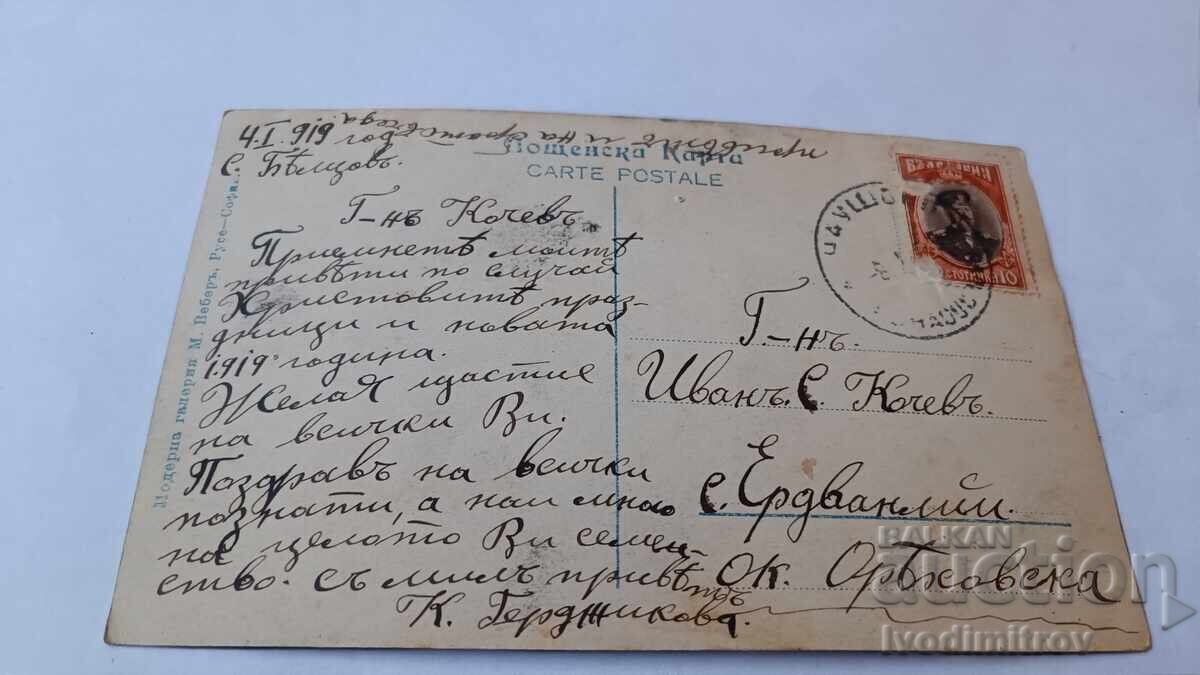 4.I.919 год
с. Бѣлцовъ.
привѣтъ и на
Пощенска Карта
CARTE POSTALE
Г-нъ Кочевъ
Приемнетѣ моитѣ
привѣти по случай
Христовитѣ праз-
дници и новата
1919 година.
Желая щастие
на всички Ви.
Поздравъ на всички
познати, а най много
на целото Ви семей-
ство. съ милъ привѣтъ
К. Герджикова.
Модерна галерия М. Веберъ, Русе—Софи
Г-нъ.
Иванъ. С. Кочевъ.
с. Ердванлий.
ок. Орѣховска
СТОТИНКИ 10
BALKAN
auction
Ivodimitrov